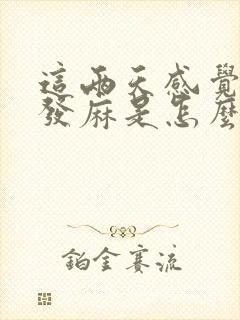 這兩天感覺
發麻是怎麼
鉑金賽流